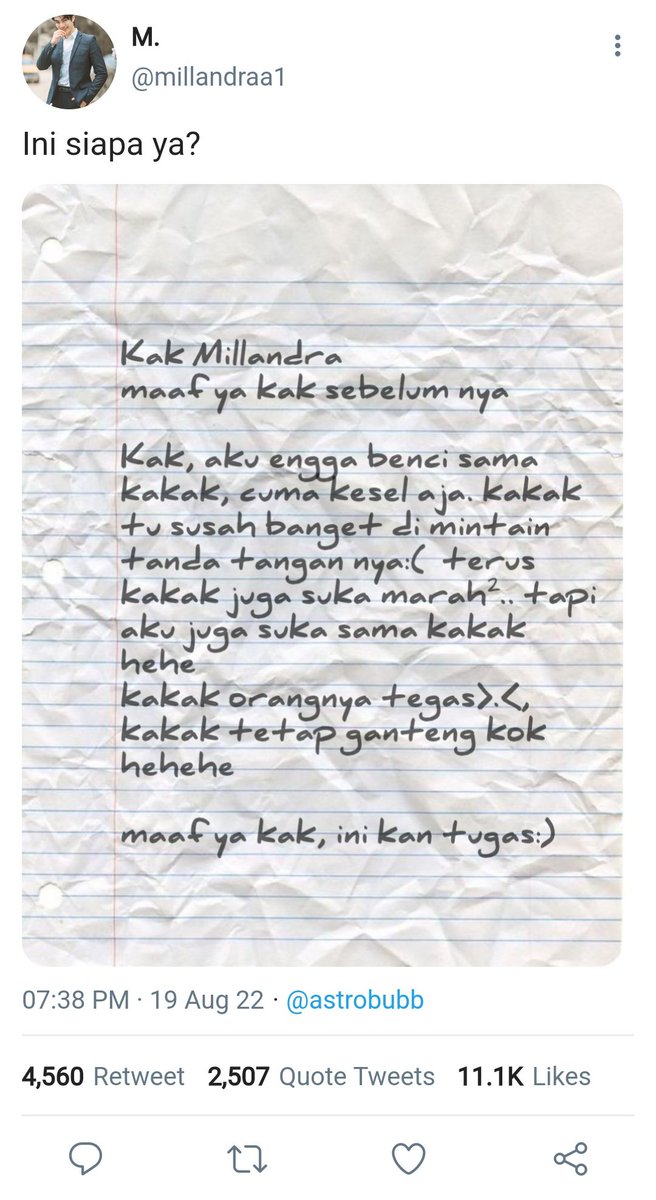 M.
@millandraa1
Ini siapa ya?
Kak Millandra
maaf ya kak sebelum nya
Kak, aku engga benci sama
kakak, cuma kesel aja. kakak
tu susah banget di mintain
tanda tangan nya:( terus
kakak juga suka marah².. tapi
aku juga suka sama kakak
hehe
kakak orangnya tegas>.<,
kakak tetap ganteng kok
hehehe
maaf ya kak, ini kan tugas:)
07:38 PM · 19 Aug 22 · @astrobubb
4,560 Retweet 2,507 Quote Tweets 11.1K Likes